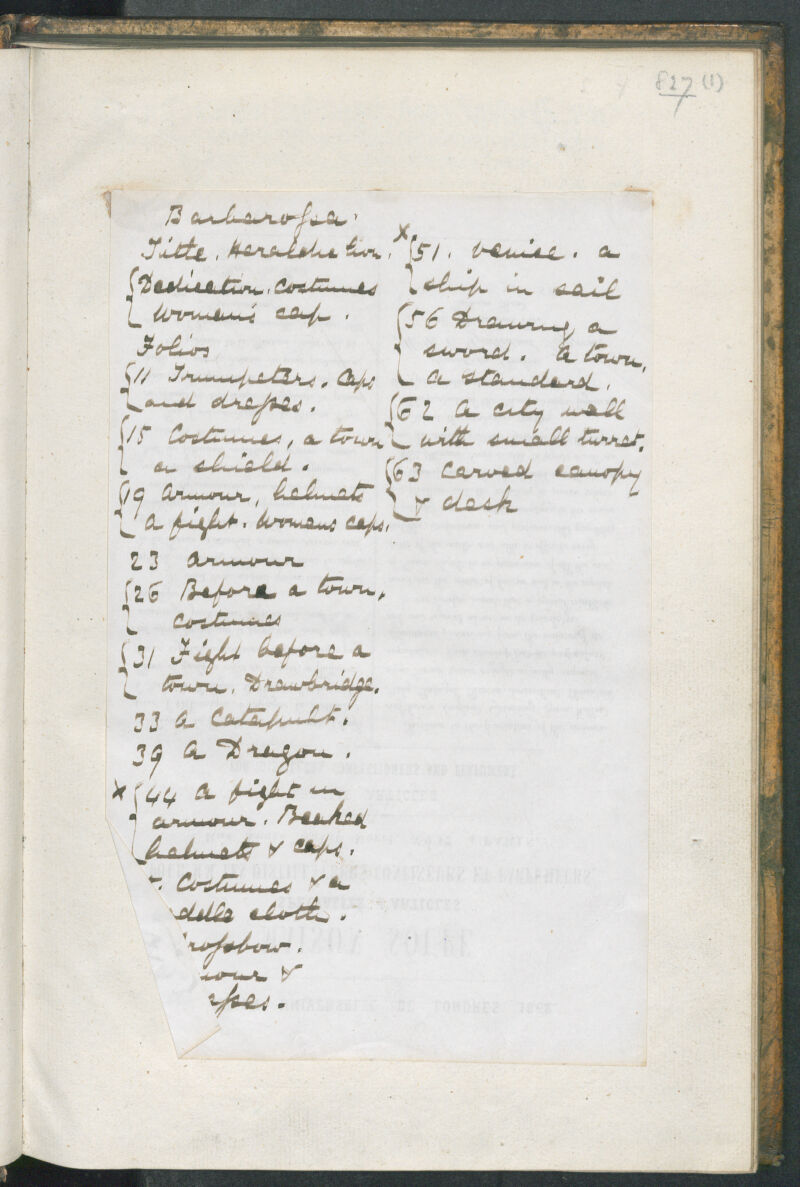 827 (1)
Barbarossa.
Title. Heraldic lion.
Dedication. Costumes
Women's cap.
Folios
11 Trumpeters. Caps
and dresses.
15 Costumes, a town
a shield.
19 armour, helmets
a fight. Womens caps.
23 armour
26 Before a town,
costumes
31 Fight before a
town. Drawbridge.
33 a Catapult.
39 a Dragon.
x 44 a fight in
armour. Beaked
helmets & caps.
Costumes & a
ddle cloth.
rossbow.
mour &
sses.
x 51. Venice. a
ship in sail
56 Drawing a
sword. A town,
a standard.
62 A city wall
with small turret.
63 carved canopy
& desk